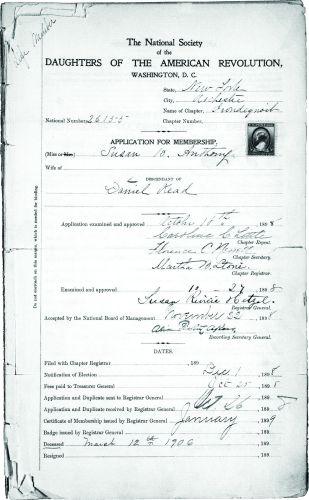 The National Society
of the
DAUGHTERS OF THE AMERICAN REVOLUTION,
WASHINGTON, D. C.
State, New York
City, Rochester
Name of Chapter, Irondequoit
National Number, 26155 Chapter Number,
APPLICATION FOR MEMBERSHIP.
(Miss or Mrs.) Susan B. Anthony
Wife of
DESCENDANT OF
Daniel Read
Do not encroach on this margin, which is needed for binding.
Application examined and approved October 18th 1898
Caroline
Chapter Regent.
Florence C.
Chapter Secretary.
Martha
Chapter Registrar.
Examined and approved 10 - 27 1898
Susan Riviere Hetzel
Registrar General.
Accepted by the National Board of Management November 22 1898
Recording Secretary General.
DATES.
Filed with Chapter Registrar 189
Notification of Election Dec 1 1898
Fees paid to Treasurer General Oct 25 1898
Application and Duplicate sent to Registrar General 189
Application and Duplicate received by Registrar General Oct 26 1898
Certificate of Membership issued by Registrar General January 1899
Badge issued by Registrar General 189
Deceased March 12th 1906
Resigned 189